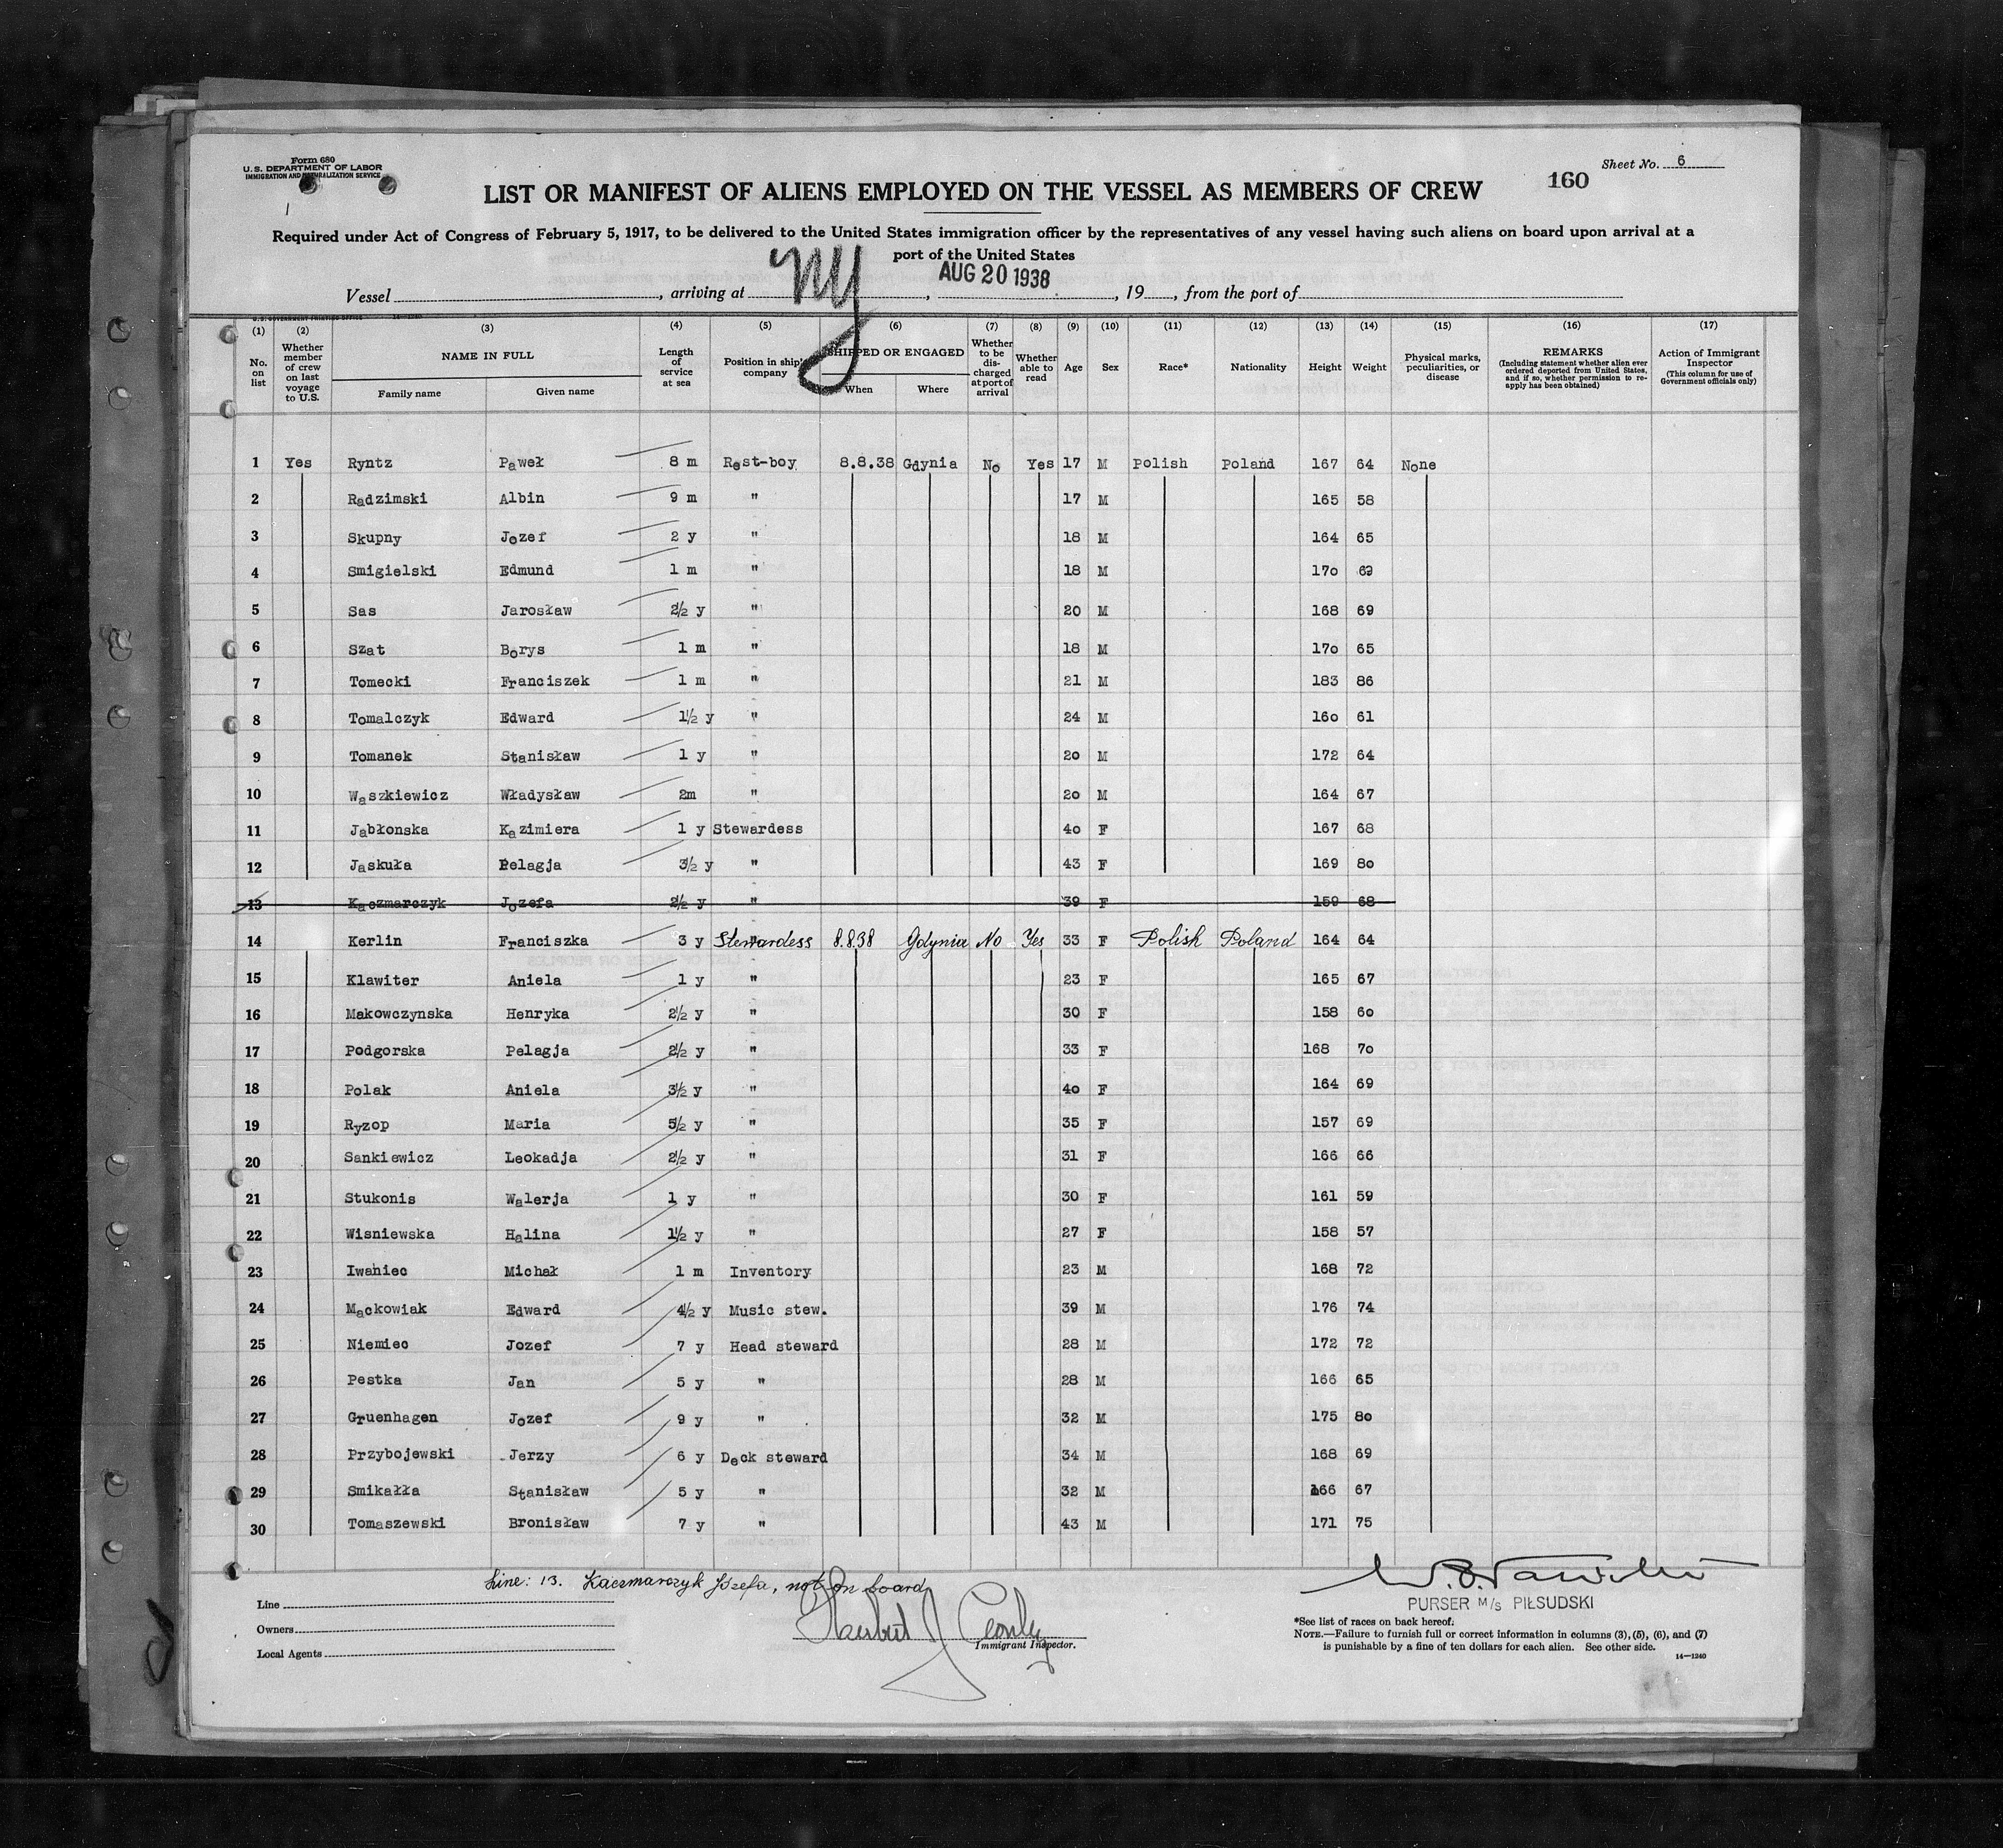 Form 680
U.S. DEPARTMENT OF LABOR
IMMIGRATION AND NATURALIZATION SERVICE
Sheet No. 6
160
LIST OR MANIFEST OF ALIENS EMPLOYED ON THE VESSEL AS MEMBERS OF CREW
Required under Act of Congress of February 5, 1917, to be delivered to the United States immigration officer by the representatives of any vessel having such aliens on board upon arrival at a
port of the United States
Vessel , arriving at NY , AUG 20 1938 , 19 , from the port of
U.S. GOVERNMENT PRINTING OFFICE 14—1240
(1) (2) (3) (4) (5) (6) (7) (8) (9) (10) (11) (12) (13) (14) (15) (16) (17)
No. on list
Whether member of crew on last voyage to U.S.
NAME IN FULL
Family name Given name
Length of service at sea
Position in ship's company
SHIPPED OR ENGAGED
When Where
Whether to be discharged at port of arrival
Whether able to read
Age Sex Race* Nationality Height Weight
Physical marks, peculiarities, or disease
REMARKS
(Including statement whether alien ever ordered deported from United States, and if so, whether permission to reapply has been obtained)
Action of Immigrant Inspector
(This column for use of Government officials only)
1 Yes Ryntz Paweł 8 m Rest-boy 8.8.38 Gdynia No Yes 17 M Polish Poland 167 64 None
2 Radzimski Albin 9 m " 17 M 165 58
3 Skupny Jozef 2 y " 18 M 164 65
4 Smigielski Edmund 1 m " 18 M 170
5 Sas Jarosław 2½ y " 20 M 168 69
6 Szat Borys 1 m " 18 M 170 65
7 Tomecki Franciszek 1 m " 21 M 183 86
8 Tomalczyk Edward 1½ y " 24 M 160 61
9 Tomanek Stanisław 1 y " 20 M 172 64
10 Waszkiewicz Władysław 2m " 20 M 164 67
11 Jabłonska Kazimiera 1 y Stewardess 40 F 167 68
12 Jaskuła Pelagja 3½ y " 43 F 169 80
13 Kaczmarczyk Jozefa 2½ y " 39 F 159 68
14 Kerlin Franciszka 3 y Stewardess 8.8.38 Gdynia No Yes 33 F Polish Poland 164 64
15 Klawiter Aniela 1 y " 23 F 165 67
16 Makowczynska Henryka 2½ y " 30 F 158 60
17 Podgorska Pelagja 2½ y " 33 F 168 70
18 Polak Aniela 3½ y " 40 F 164 69
19 Ryzop Maria 5½ y " 35 F 157 69
20 Sankiewicz Leokadja 2½ y " 31 F 166 66
21 Stukonis Walerja 1 y " 30 F 161 59
22 Wisniewska Halina 1½ y " 27 F 158 57
23 Iwaniec Michał 1 m Inventory 23 M 168 72
24 Mackowiak Edward 4½ y Music stew. 39 M 176 74
25 Niemiec Jozef 7 y Head steward 28 M 172 72
26 Pestka Jan 5 y " 28 M 166 65
27 Gruenhagen Jozef 9 y " 32 M 175 80
28 Przybojewski Jerzy 6 y Deck steward 34 M 168 69
29 Smikałła Stanisław 5 y " 32 M 166 67
30 Tomaszewski Bronisław 7 y " 43 M 171 75
Line: 13. Kaczmarczyk Józefa, not on board
Line
Owners
Local Agents
Immigrant Inspector.
PURSER M/s PIŁSUDSKI
*See list of races on back hereof.
NOTE.—Failure to furnish full or correct information in columns (3), (5), (6), and (7)
is punishable by a fine of ten dollars for each alien. See other side.
14—1240